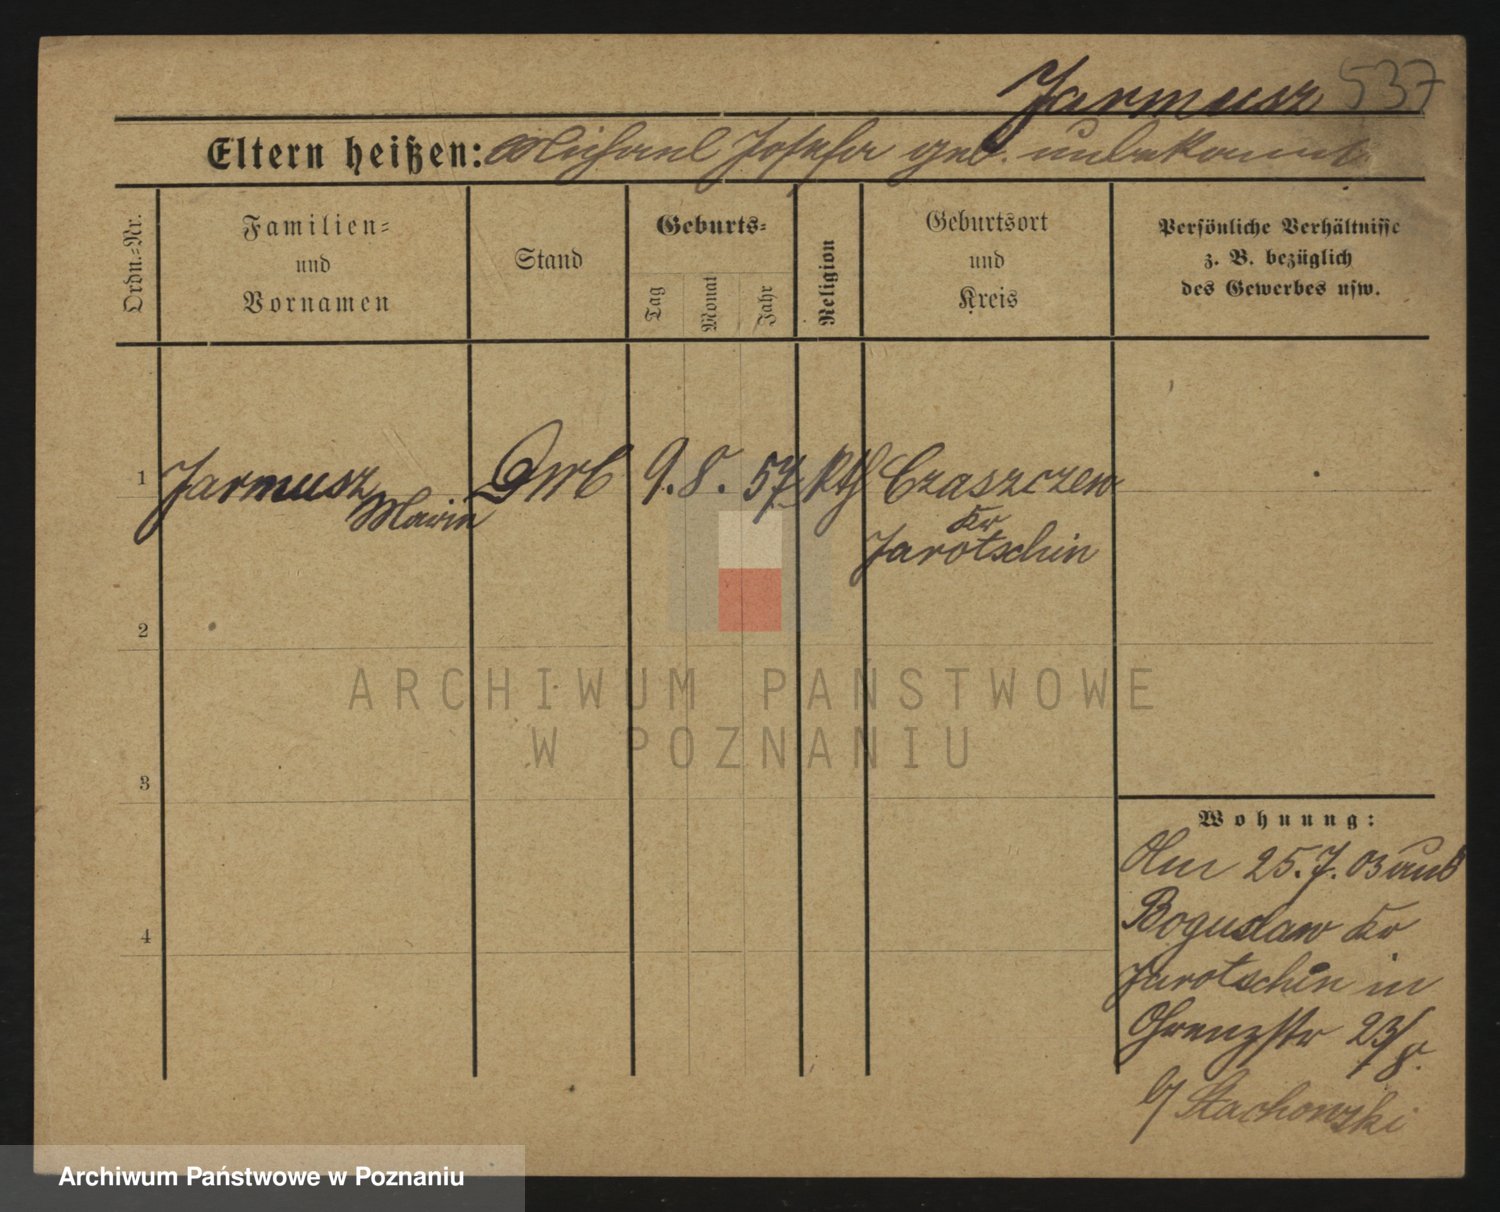 Jarmusz 537
Eltern heißen: Michael Josefa geb. unbekannt
Ordn.-Nr.
Familien-
und
Vornamen
Stand
Geburts-
Tag
Monat
Jahr
Religion
Geburtsort
und
Kreis
Persönliche Verhältnisse
z. B. bezüglich
des Gewerbes usw.
1 Jarmusz Marie 9. 8. 57 Kth Czaszczew
Kr
Jarotschin
2
3
4
Wohnung:
Am 25.7.03 aus
Boguslaw Kr
Jarotschin in
Grenzstr 23/8.
b/ Stachowski
ARCHIWUM PAŃSTWOWE
W POZNANIU
Archiwum Państwowe w Poznaniu